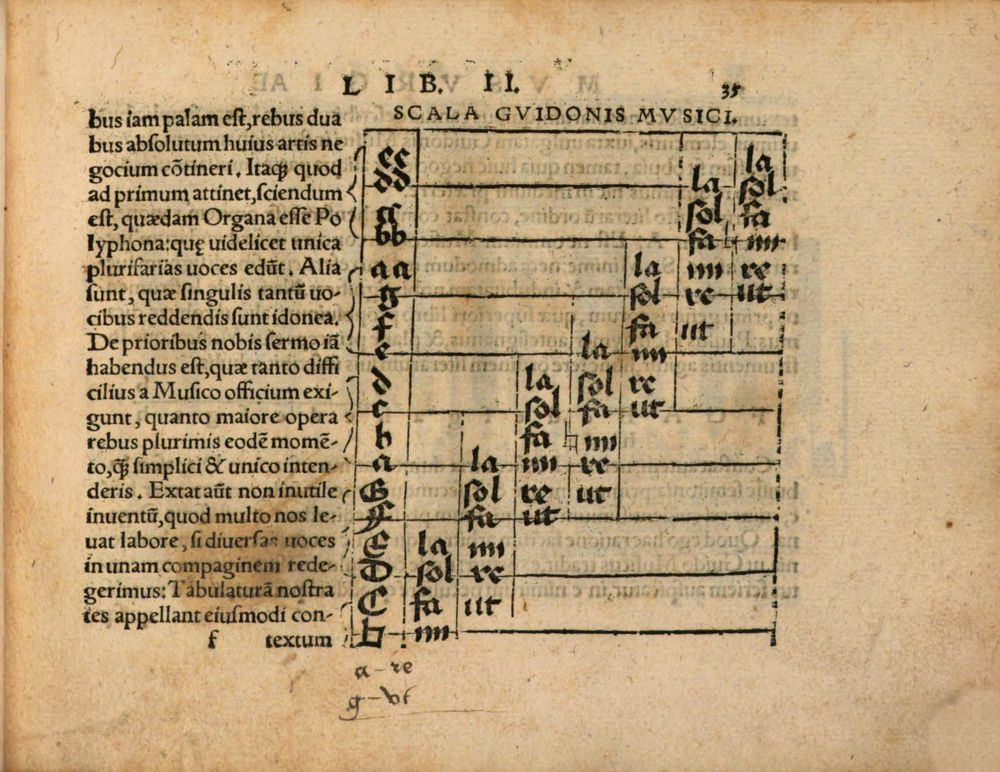 LIB. II. 35
SCALA GVIDONIS MVSICI.
bus iam palam est, rebus dua
bus absolutum huius artis ne
gocium cōtineri. Itaq; quod
ad primum attinet, sciendum
est, quædam Organa esse Po
lyphona: quę uidelicet unica
plurifarias uoces edūt. Alia
sunt, quæ singulis tantū uo-
cibus reddendis sunt idonea.
De prioribus nobis sermo iā
habendus est, quæ tanto diffi
cilius a Musico officium exi-
gunt, quanto maiore opera
rebus plurimis eodē momē-
to, q̄ simplici & unico inten-
deris. Extat aūt non inutile
inuentū, quod multo nos le-
uat labore, si diuersas uoces
in unam compaginem rede-
gerimus: Tabulaturā nostra
tes appellant eiusmodi con-
f textum
ee la
dd la sol
cc sol fa
bb fa mi
aa la mi re
g sol re ut
f fa ut
e la mi
d la sol re
c sol fa ut
b fa mi
a la mi re
G sol re ut
F fa ut
E la mi
D sol re
C fa ut
♮ mi
a - re
g - vt